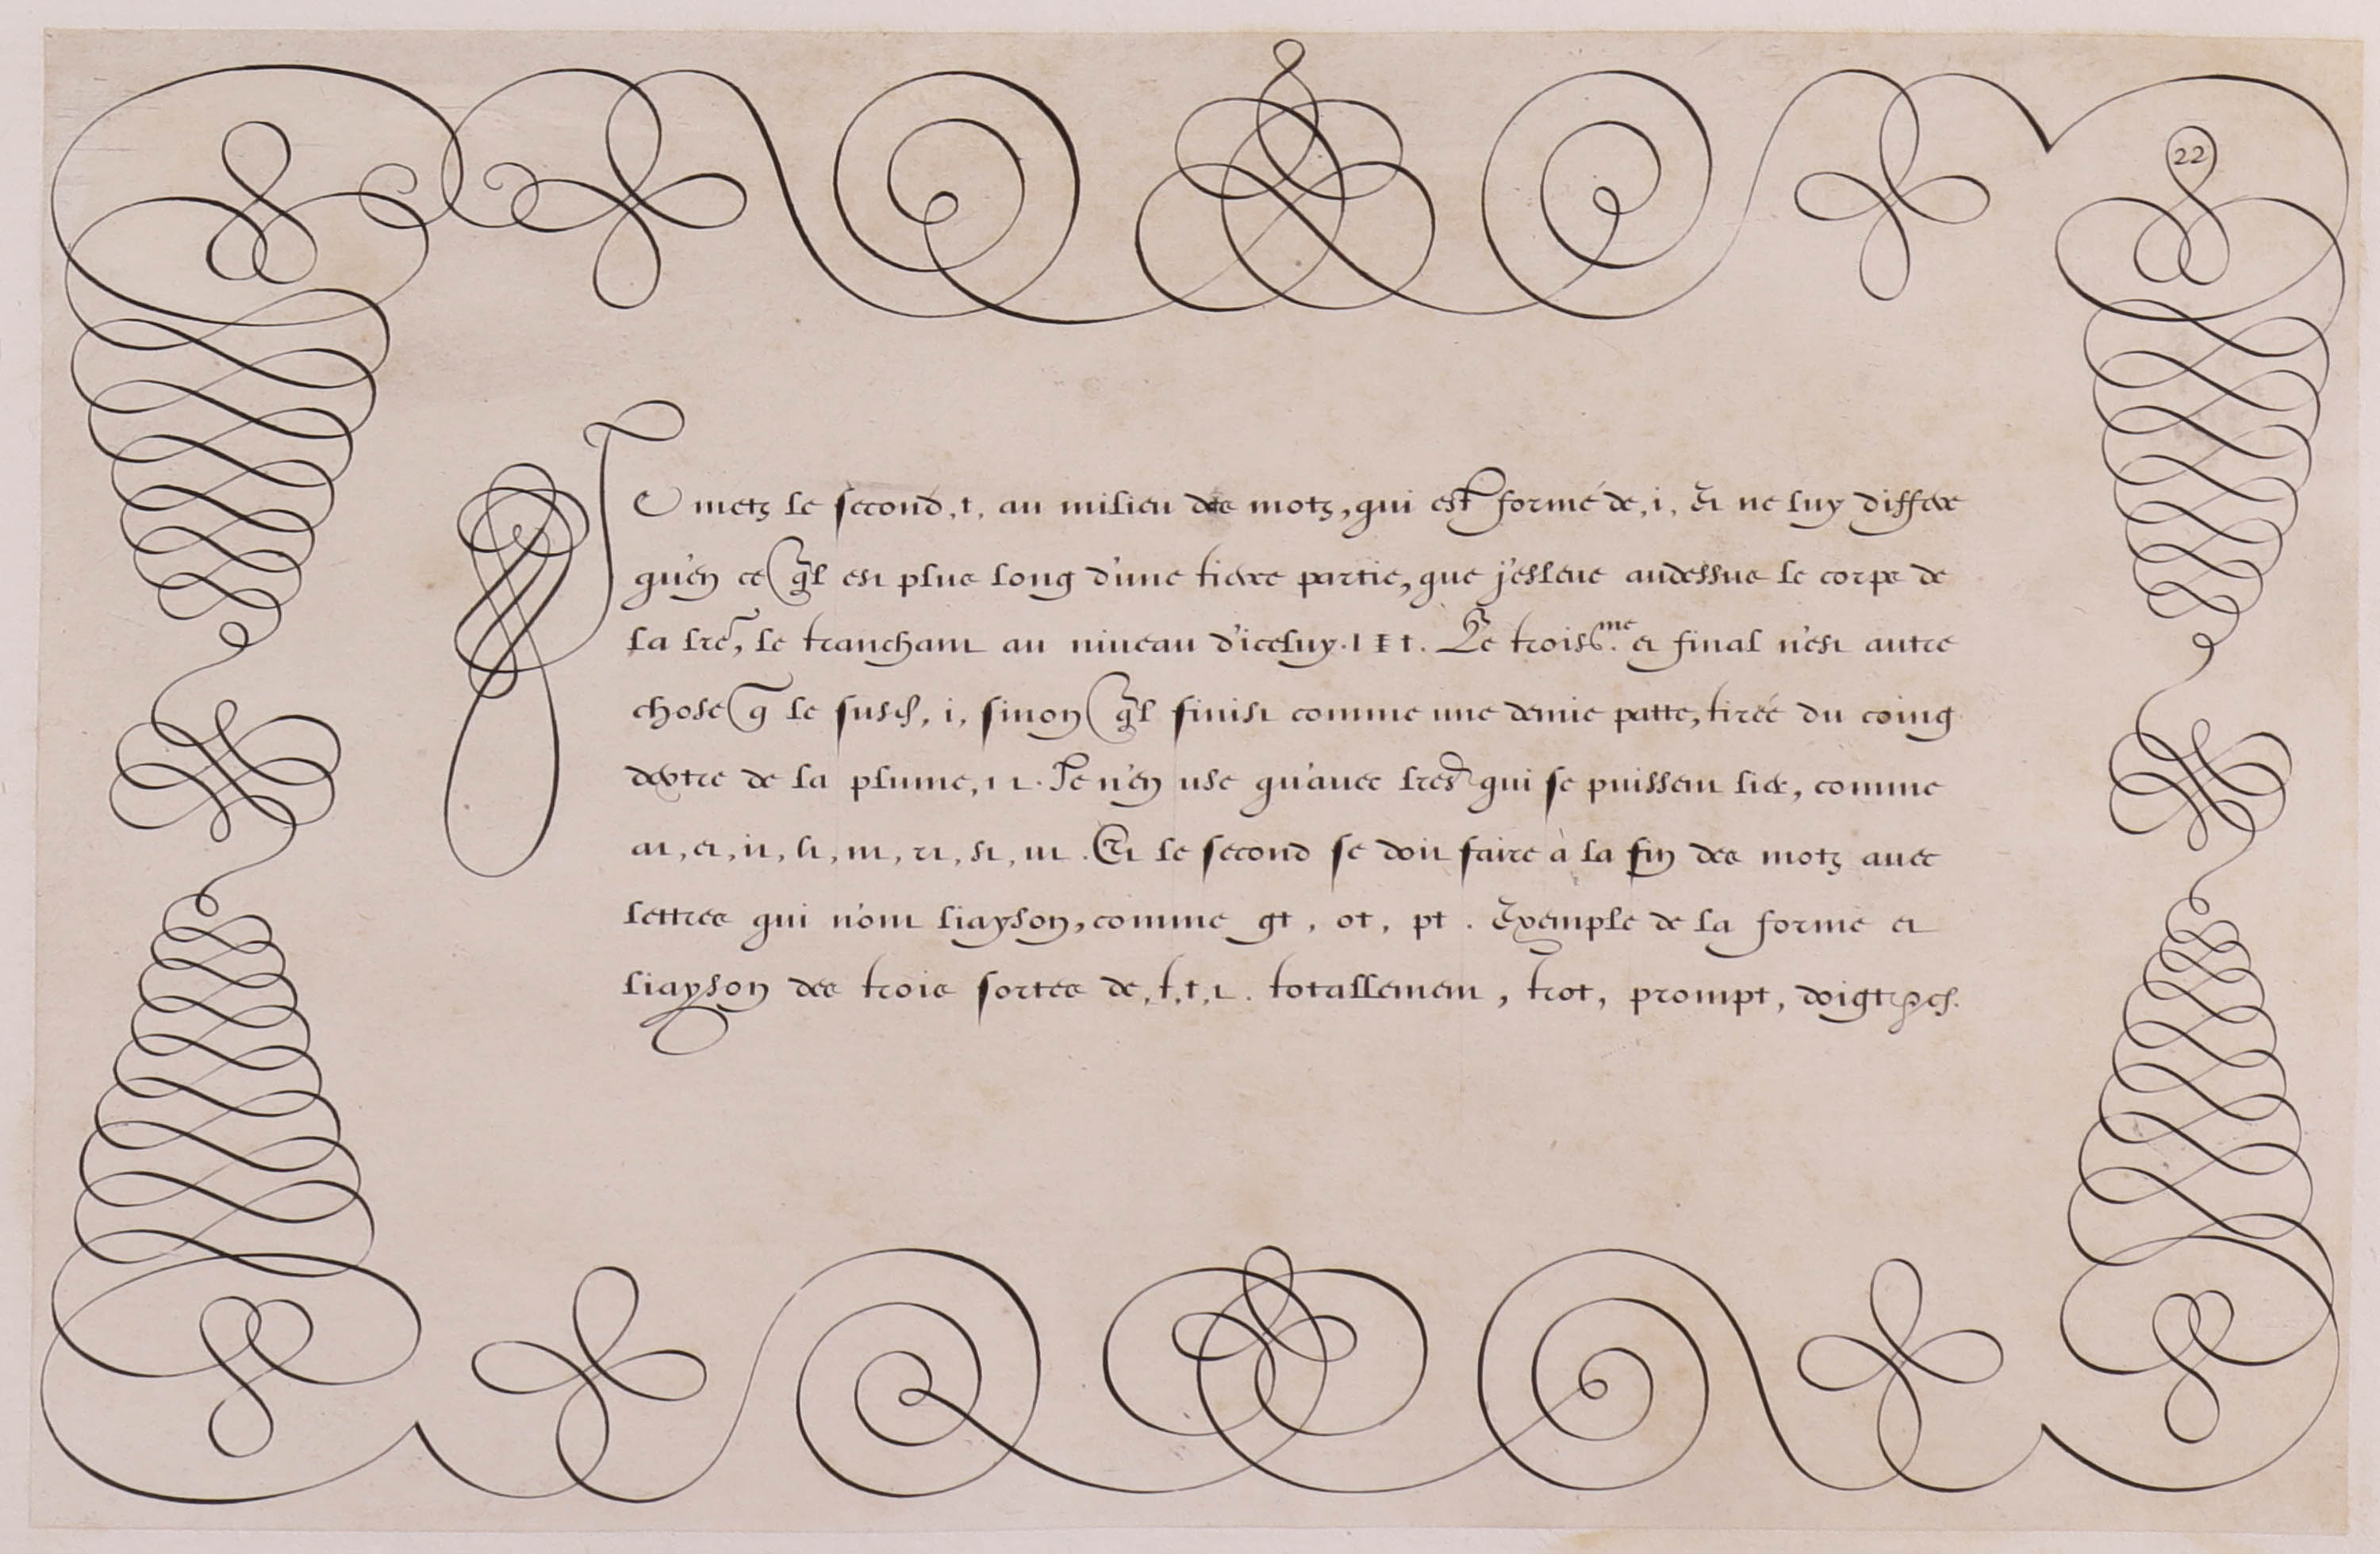 22
Je metz le second, t, au milieu des motz, qui est formé de, i, Et ne luy differe
qu'en ce q̃l est plus long d'une tierce partie, que j'esleve audessus le corps de
la lrẽ, le tranchant au niveau d'iceluy. ı ŧ t. Le troisme. et final n'est autre
chose q̃ le susd, i, sinon q̃l finist comme une demie patte, tirée du coing
dextre de la plume, ı ɩ. Je n'en use qu'avec lres qui se puissent lier, comme
at, et, it, lt, nt, rt, st, ut. Et le second se doit faire à la fin des motz avec
lettres qui n'ont liayson, comme gt, ot, pt. Exemple de la forme et
liayson des trois sortes de, t, t, t. totallement, trot, prompt, doigt &c.